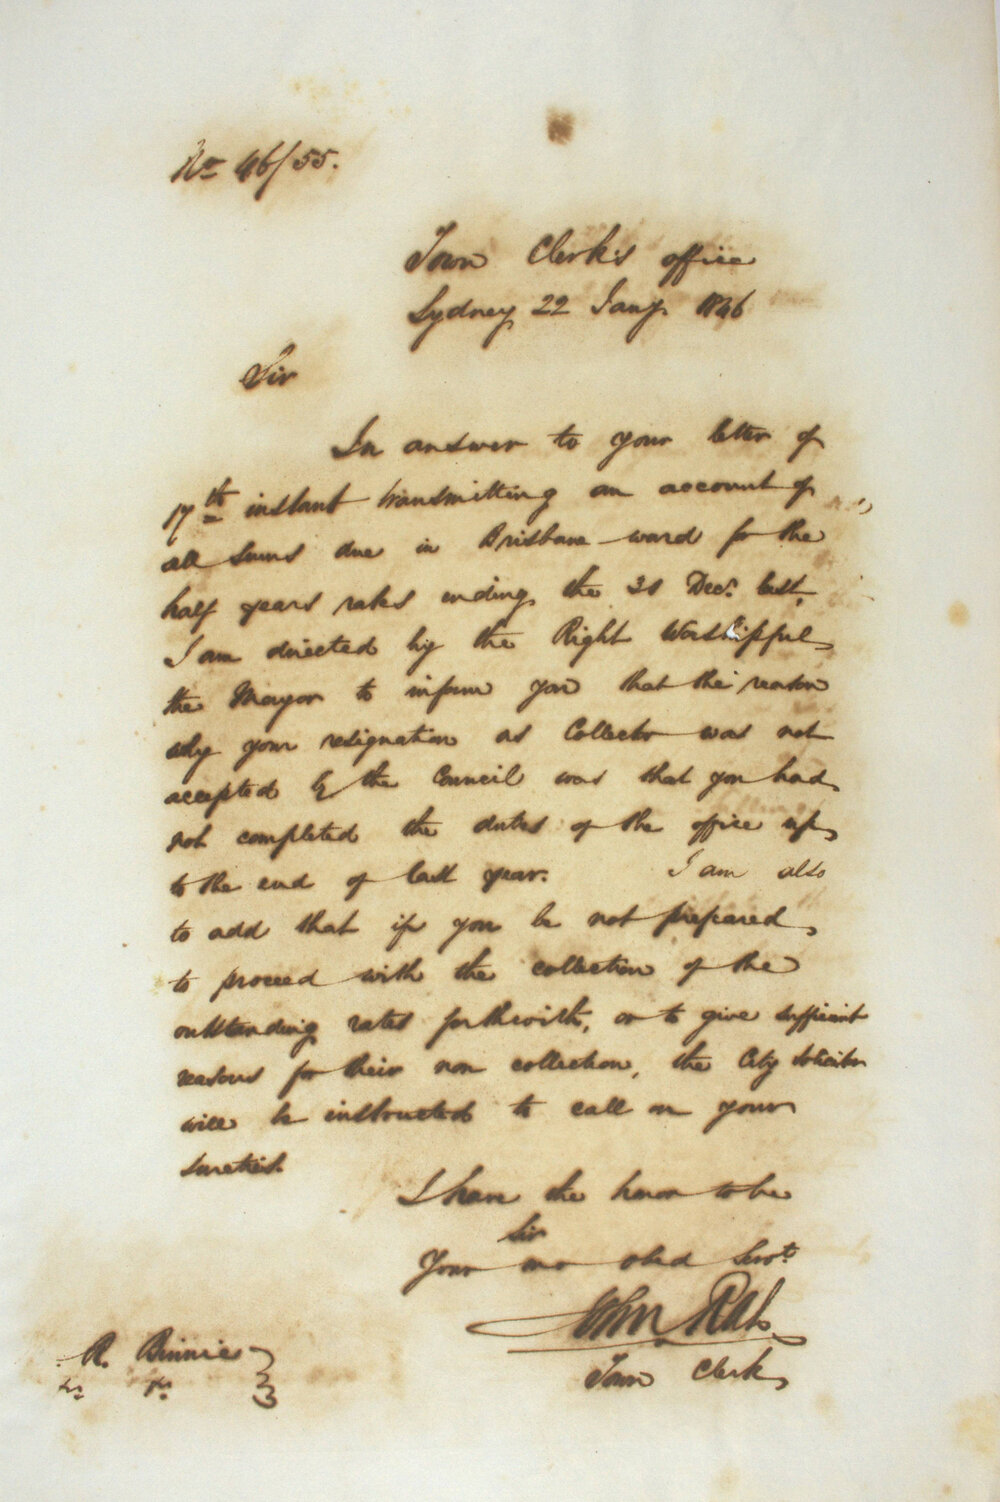 No 46/55.
Town Clerk's office
Sydney 22 Jany. 1846
Sir
In answer to your letter of
17th instant transmitting an account of
all sums due in Brisbane ward for the
half years rates ending the 31 Decr. last,
I am directed by the Right Worshipful
the Mayor to inform you that the reason
why your resignation as Collector was not
accepted by the Council was that you had
not completed the duties of the office up
to the end of last year. I am also
to add that if you be not prepared
to proceed with the collection of the
outstanding rates forthwith, or to give sufficient
reasons for their non collection, the City Solicitor
will be instructed to call on your
sureties.
I have the honor to be
Sir
Your mo obed Servt.
John
Town Clerk
R. Binnie